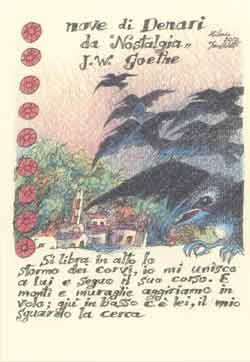 nove di Denari
da "Nostalgia„
J. W. Goethe
Milano
Si libra in alto lo
stormo dei corvi, io mi unisco
a lui e seguo il suo corso. E
monti e muraglie aggiriamo in
volo; giù in basso c'è lei, il mio
sguardo la cerca